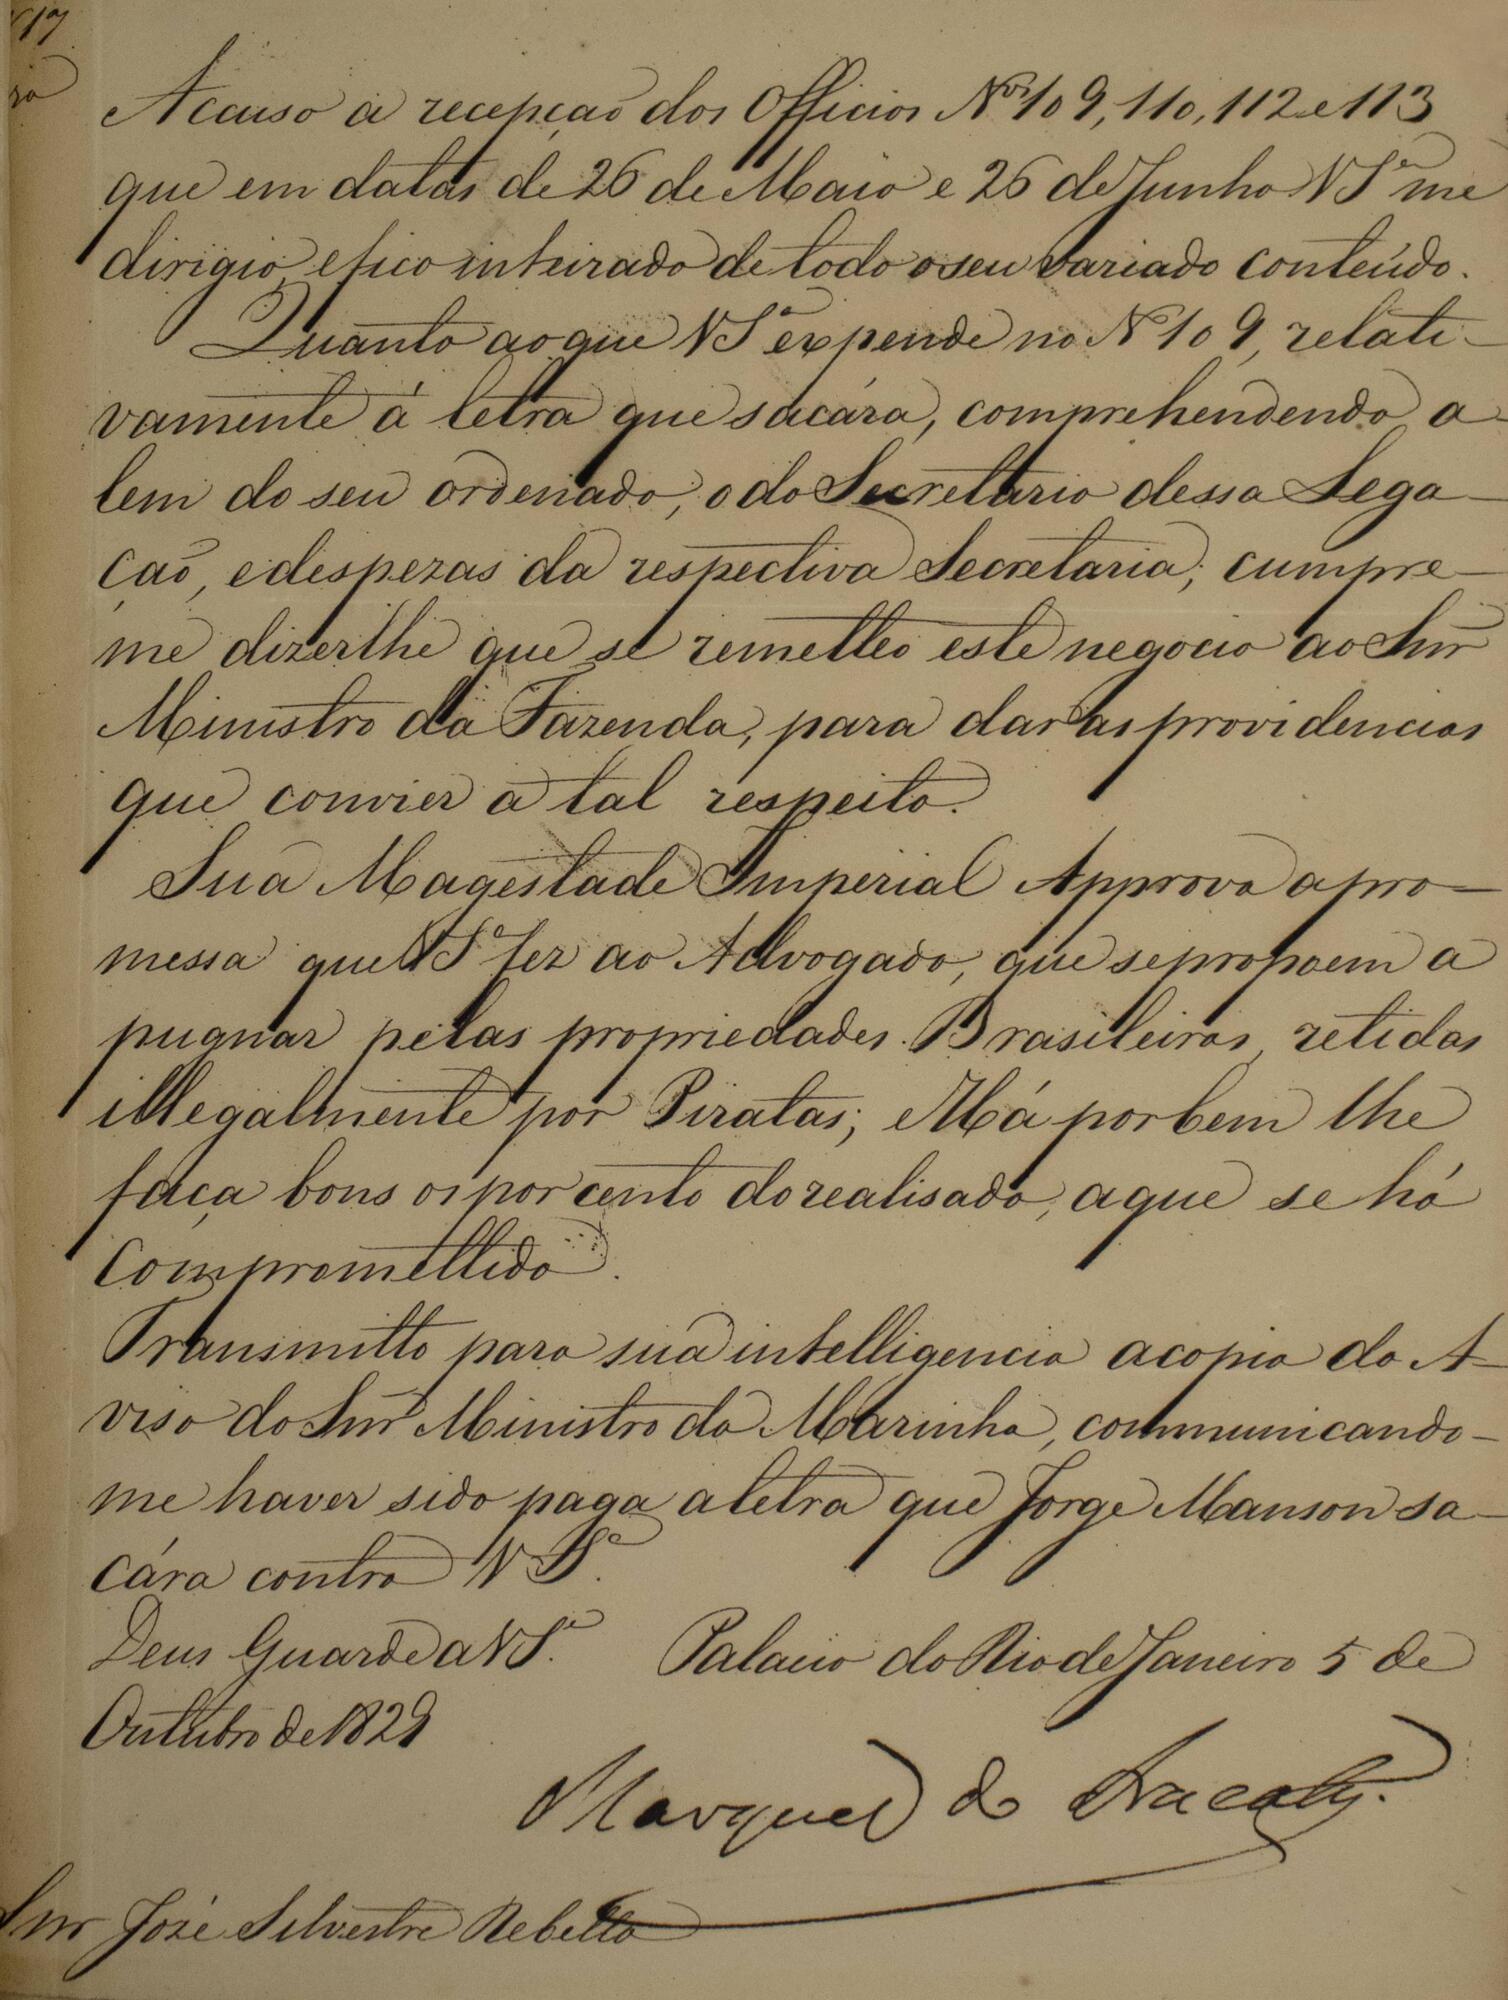 Accuso a recepção dos Officios Nos 109, 110, 112 e 113
que em datas de 26 de Maio e 26 de Junho V Sa me
dirigio, e fico inteirado de todo o seu variado conteúdo.
Quanto ao que V Sa expende no No 109, relati-
vamente á letra que sacára, comprehendendo a-
lem do seu ordenado, o do Secretario dessa Lega-
ção, e despezas da respectiva Secretaria; cumpre-
me dizerlhe que se remetteo este negocio ao Snr
Ministro da Fazenda, para dar as providencias
que convier a tal respeito.
Sua Magestade Imperial Approva a pro-
messa que V Sa fez ao Advogado, que se propoem a
pugnar pelas propriedades Brasileiras, retidas
illegalmente por Piratas; e Há por bem lhe
faça bons os por cento do realisado, a que se há
Compromettido.
Transmitto para sua intelligencia a copia do A-
viso do Snr Ministro da Marinha, communicando-
me haver sido paga a letra que Jorge Manson sa-
cára contra V Sa.
Deus Guarde a V Sa. Palacio do Rio de Janeiro 5 de
Outubro de 1829
Marquez de Aracaty.
Snr José Silvestre Rebello